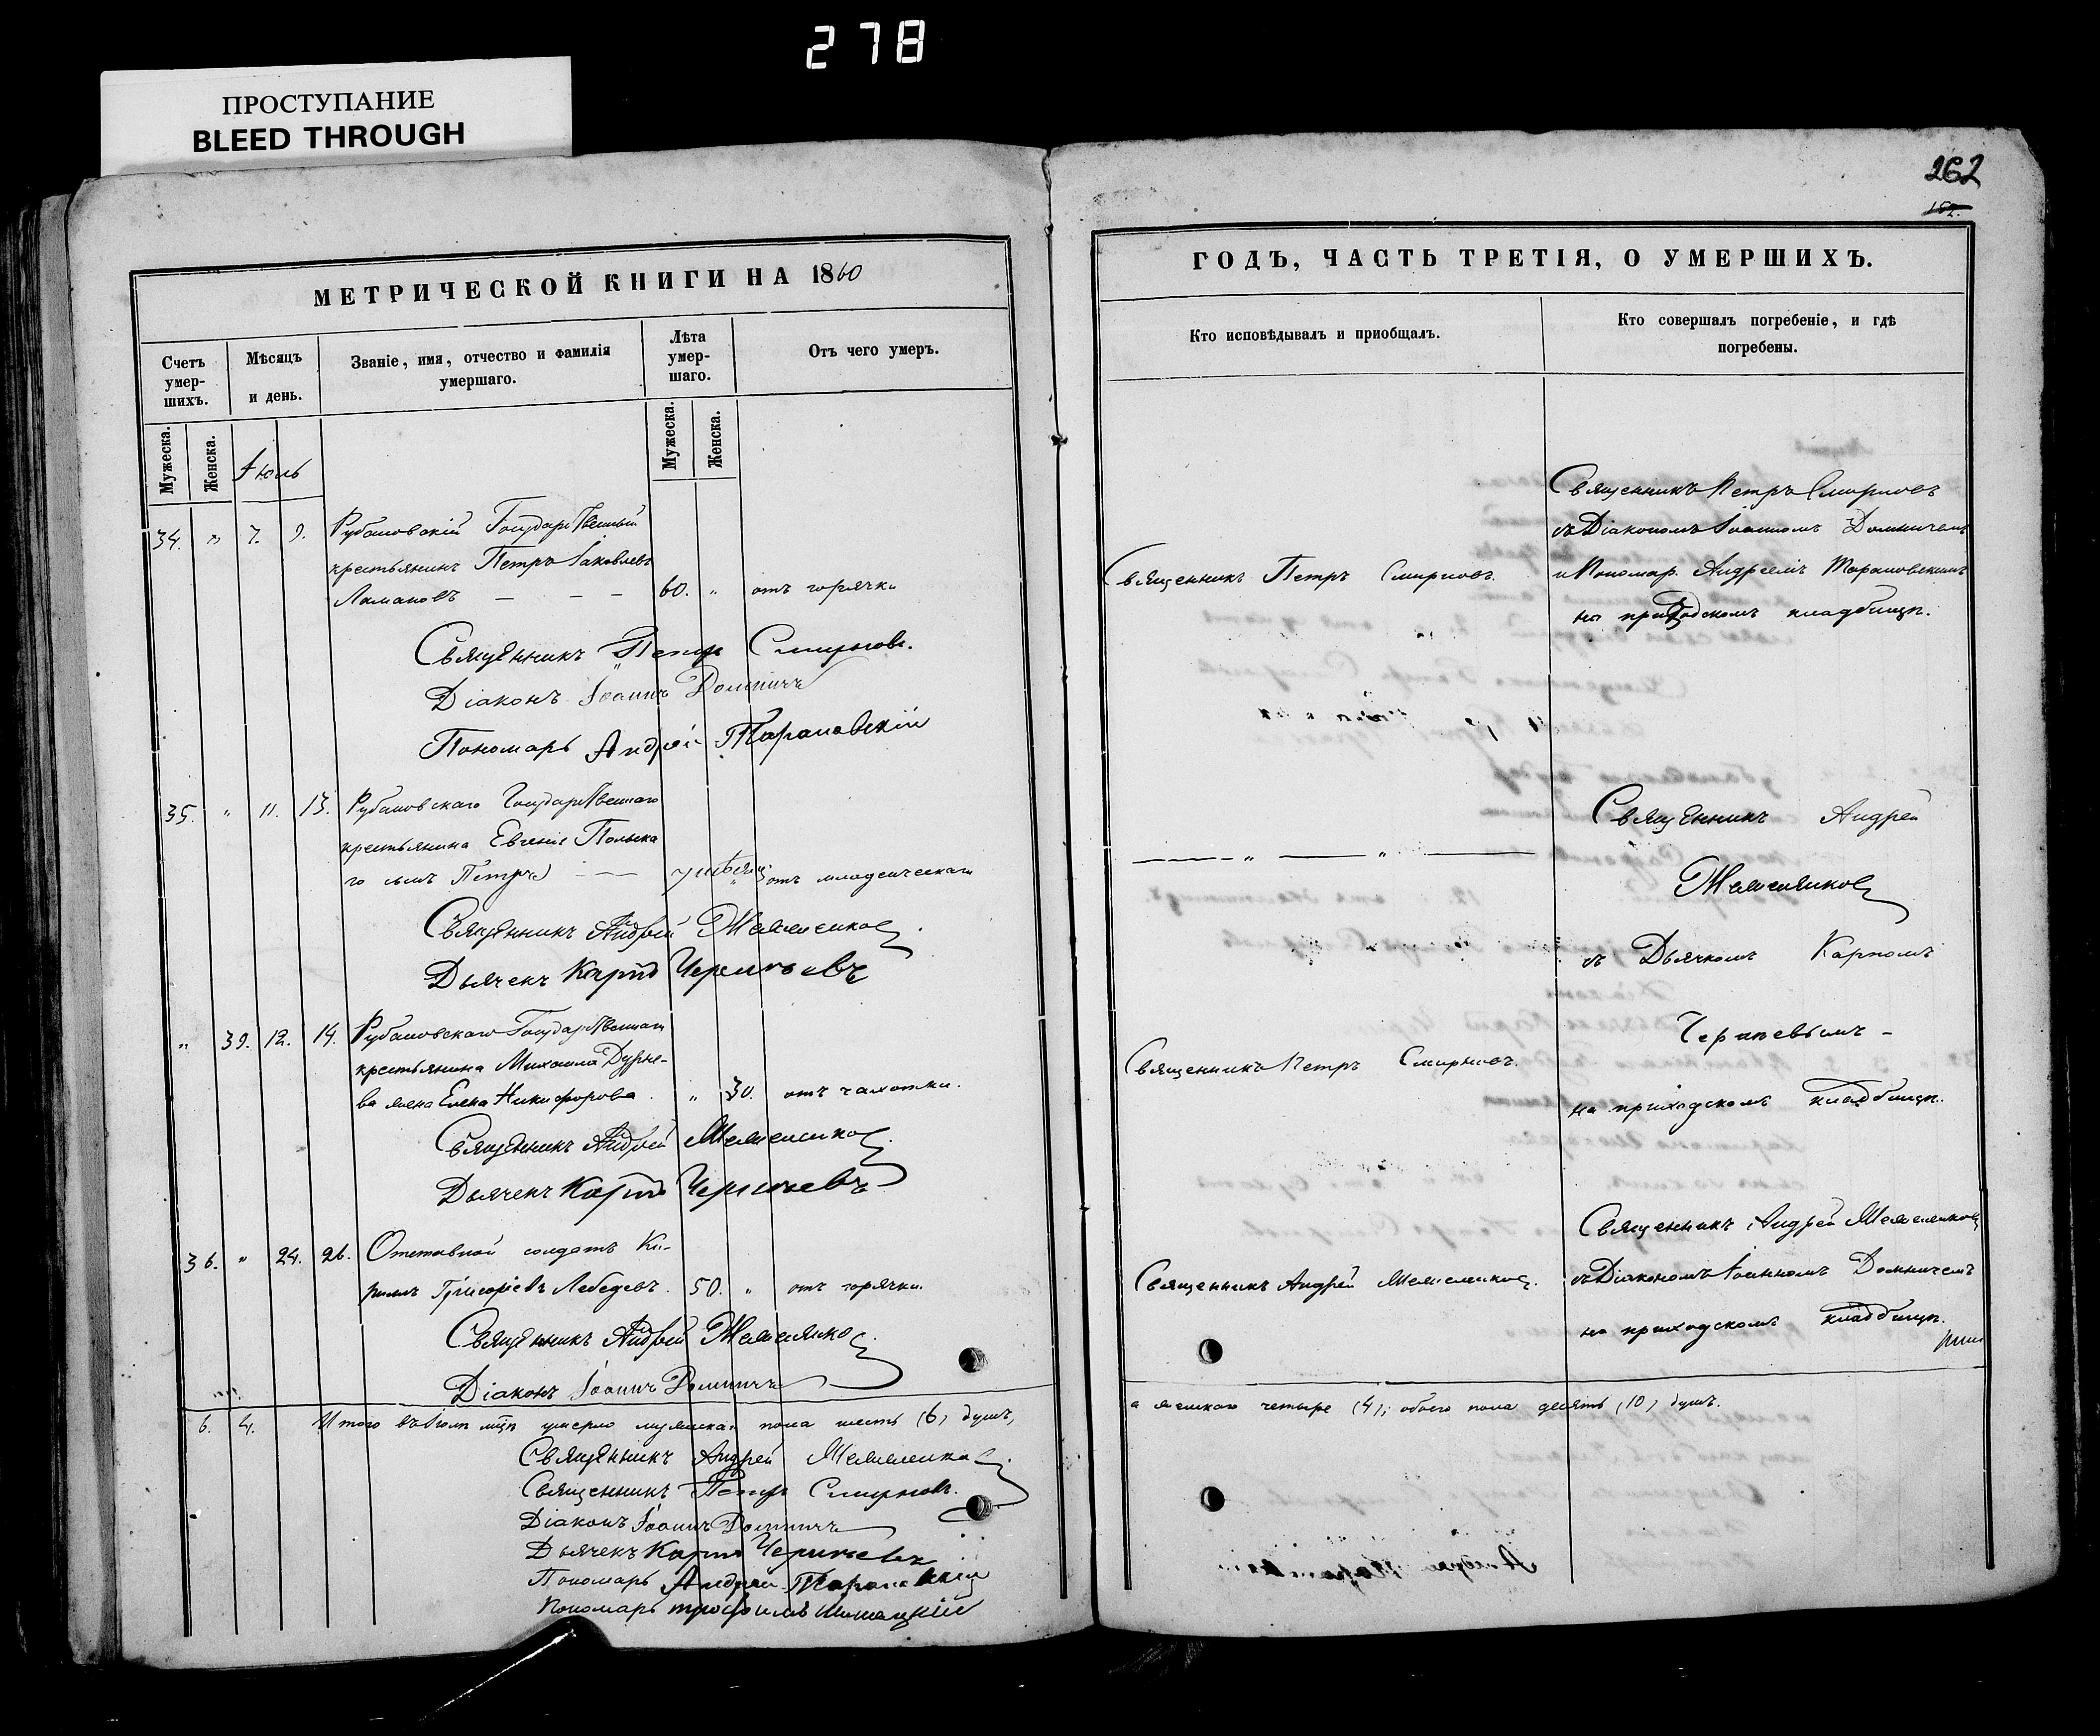 278
ПРОСТУПАНИЕ
BLEED THROUGH
МЕТРИЧЕСКОЙ КНИГИ НА 1860
Счетъ умер-шихъ.
Мѣсяцъ и день.
Званіе, имя, отчество и фамилія умершаго.
Лѣта умер-шаго.
Отъ чего умеръ.
Мужеска.
Женска.
Іюль
Мужеска.
Женска.
34. " 7. 9. Рубановскій Государственный
крестьянинъ Петръ Іаковлевъ
Ламановъ — — — 60. " отъ горячки
Священникъ Петръ Смирновъ.
Діаконъ Іоаннъ Домничъ
Пономарь Андрей Тарановскій
35. " 11. 13. Рубановскаго Государственнаго
крестьянина Евгенія
го сынъ Петръ — — 7 отъ младенческаго
Священникъ Андрей
Дьячекъ Карпъ
" 39. 12. 14. Рубановскаго Государственнаго
крестьянина Михаила Дурне-
ва жена Елена Никифорова. " 30. отъ чахотки.
Священникъ Андрей
Дьячекъ Карпъ
36. " 24. 26. Отставной солдатъ Ки-
риллъ Григоріевъ Лебедевъ. 50. " отъ горячки.
Священникъ Андрей
Діаконъ Іоаннъ Домничъ
6. 4. Итого въ Іюлѣ мцѣ умерло мужеска пола шесть (6) душъ,
Священникъ Андрей
Священникъ Петръ Смирновъ.
Діаконъ Іоаннъ Домничъ
Дьячекъ Карпъ
Пономарь Андрей Тарановскій
Пономарь Трофимъ
262
152.
ГОДЪ, ЧАСТЬ ТРЕТІЯ, О УМЕРШИХЪ.
Кто исповѣдывалъ и приобщалъ.
Кто совершалъ погребеніе, и гдѣ погребены.
Священникъ Петръ Смирновъ
съ Діакономъ Іоанномъ Домничемъ
Священникъ Петръ Смирновъ.
и Пономар. Андреемъ Тарановскимъ
на приходскомъ кладбищѣ.
Священникъ Андрей
— — — " — — " — —
съ Дьячкомъ Карпомъ
Священникъ Петръ Смирновъ.
на приходскомъ кладбищѣ.
Священникъ Андрей
Священникъ Андрей
съ Діакономъ Іоанномъ Домничемъ
на приходскомъ кладбищѣ.
а женскаго четыре (4), обоего пола десять (10) душъ.